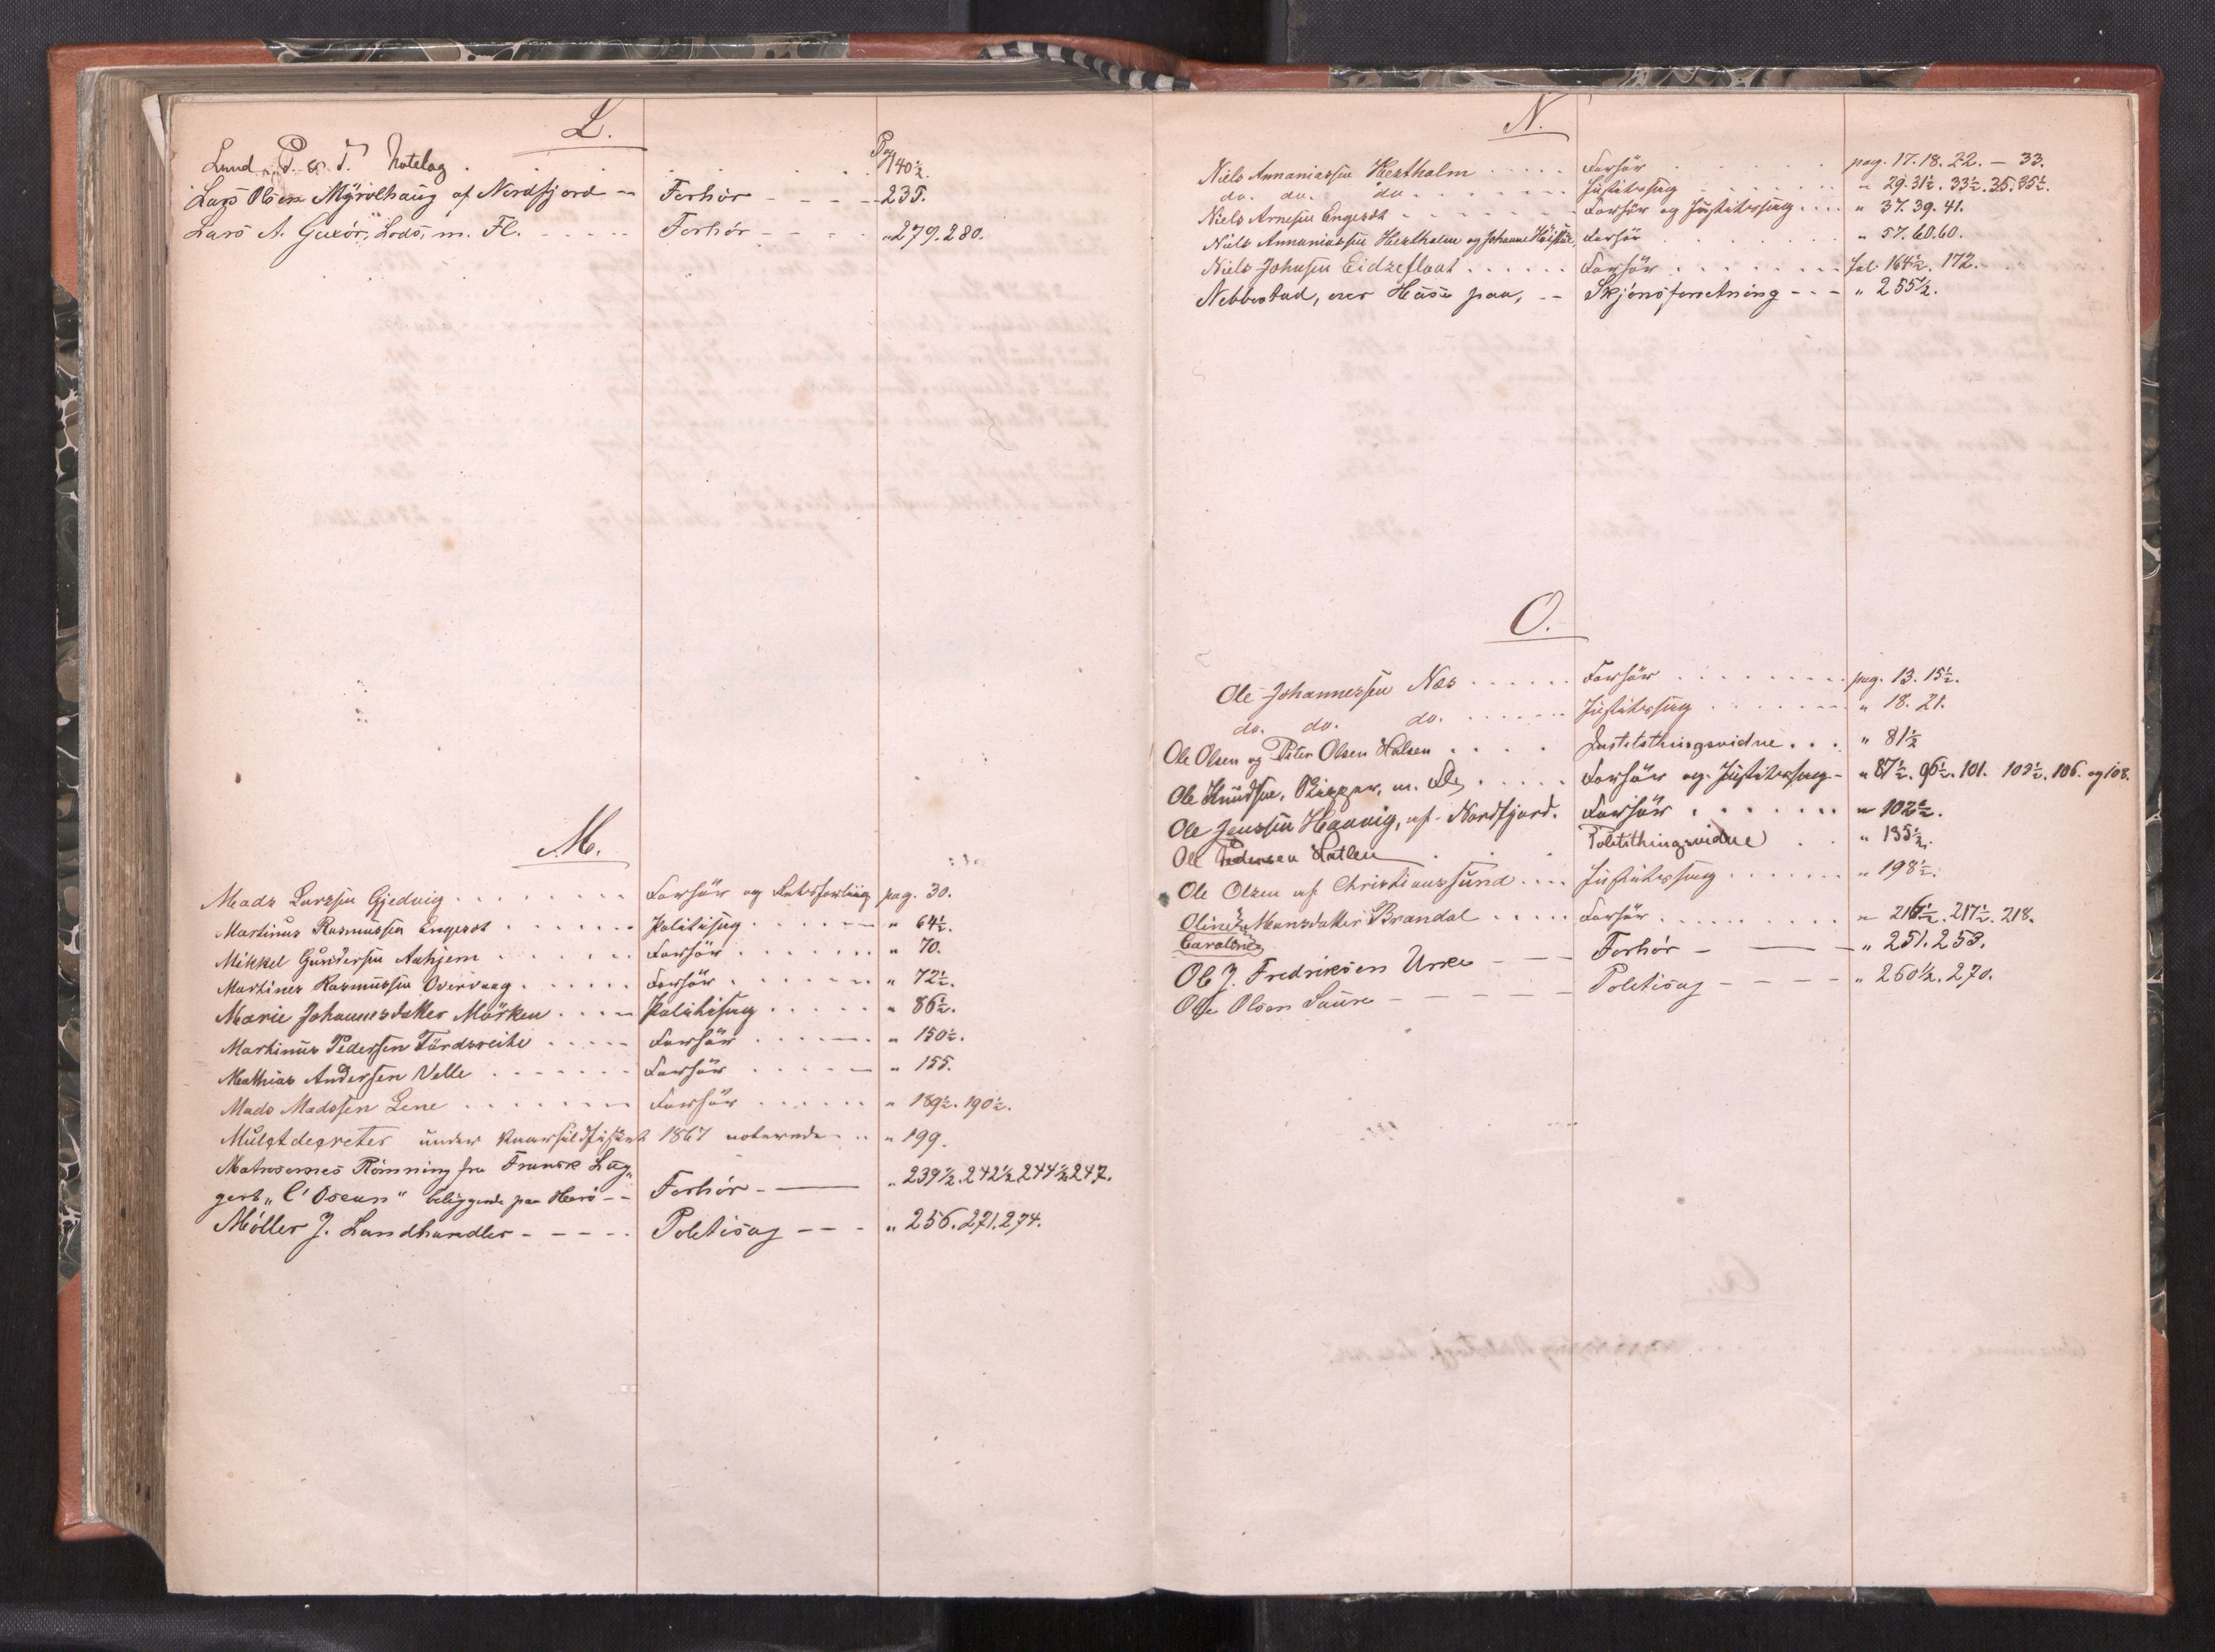 L.
Pag
Lund, P. & T. Notelag . . . . . 140½.
Lars Olsen Myrolhaug af Nordfjord -- Forhör - - - - 235.
Lars A. Gurör, Lods, m. Fl. - - - - Forhör - - - - " 279. 280.
M.
Mads Larssen Gjedvig . . . . . . Forhör og pag. 30.
Martinus Rasmussen Engeset . . . . . Politisag . . . . " 64½.
Mikkel Gundersen Aahjem . . . . . Forhör . . . . . " 70.
Martines Rasmussen Overvaag . . . . . Forhör . . . . . " 72½.
Marie Johannesdatter Mörken . . . . Politisag . . . . . " 86½.
Martinus Pedersen Fördsreite . . . . . Forhör . . . . . " 150½.
Mathias Andersen Velle . . . . . . Forhör . . . . . " 155.
Mads Madssen Lene . . . . . . Forhör . . . . . " 189½. 190½.
Mulgtdegreter under Vaarsildfisket 1867 noterede . . " 199.
Matrosernes Römning fra Fransk Lug-
gert "l'Osean" beliggende paa Herö -- Forhör - — " 239½. 242½. 244½. 247.
Möller J. Landhandler - - - - - Politisag - - - " 256. 271. 274.
N.
Niels Annaniassen Hestholm . . . . . Forhör . . . . . pag. 17. 18. 22. — 33.
do. do. do. . . . . . . Justitssag . . . . . " 29. 31½. 33½. 35. 35½.
Niels Arnesen Engeset . . . . . . Forhör og Justitssag . . . . " 37. 39. 41.
Niels Annaniassen Hestholm og Johanne Forhör . . . . . " 57. 60. 60.
Niels Johnsen Eidzeflaat . . . . . . Forhör . . . . . . Fol. 164½. 172.
Nebbestad, over Huse paa, -- Skjönsforretning - - - " 255½.
O.
Ole Johannessen Næs . . . . . . Forhör . . . . . . pag. 13. 15½.
do. do. do. . . . . . . Justitssag . . . . . . " 18. 21.
Ole Olsen og Peter Olsen Halsen . . . . Justitsthingsvidne . . . " 81½
Ole Knudsen, Skipper, m. Fl. . . . . . Forhör og Justitssag - " 87½. 96½. 101. 102½. 106. og 108.
Ole Jenssen Haavig, af Nordfjord. Forhör . . . . . . " 102½.
Ole Pedersen Hatlen . . . Politithingsvidne . . " 135½.
Ole Olsen af Christianssund . . . . Justitssag . . . . . . " 198½.
Oline Hansdatter Brandal . . . . . Forhör . . . . . . " 216½. 217½. 218.
Caroline
Ole J. Fredriksen Urke - - - Forhör - — - " 251. 253.
Ole Olsen Saure - - - - - - Politisag - - - - " 260½. 270.